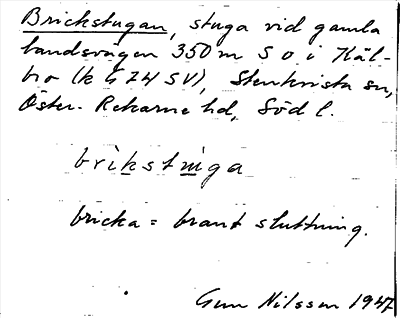 Brickstugan, stuga vid gamla
landsvägen 350 m S o i Käl-
bro (k G 74 SV), Stenkvista sn,
Öster-Rekarne hd, Söd l.
brikstuga
bricka = brant sluttning.
Gun Nilsson 1947